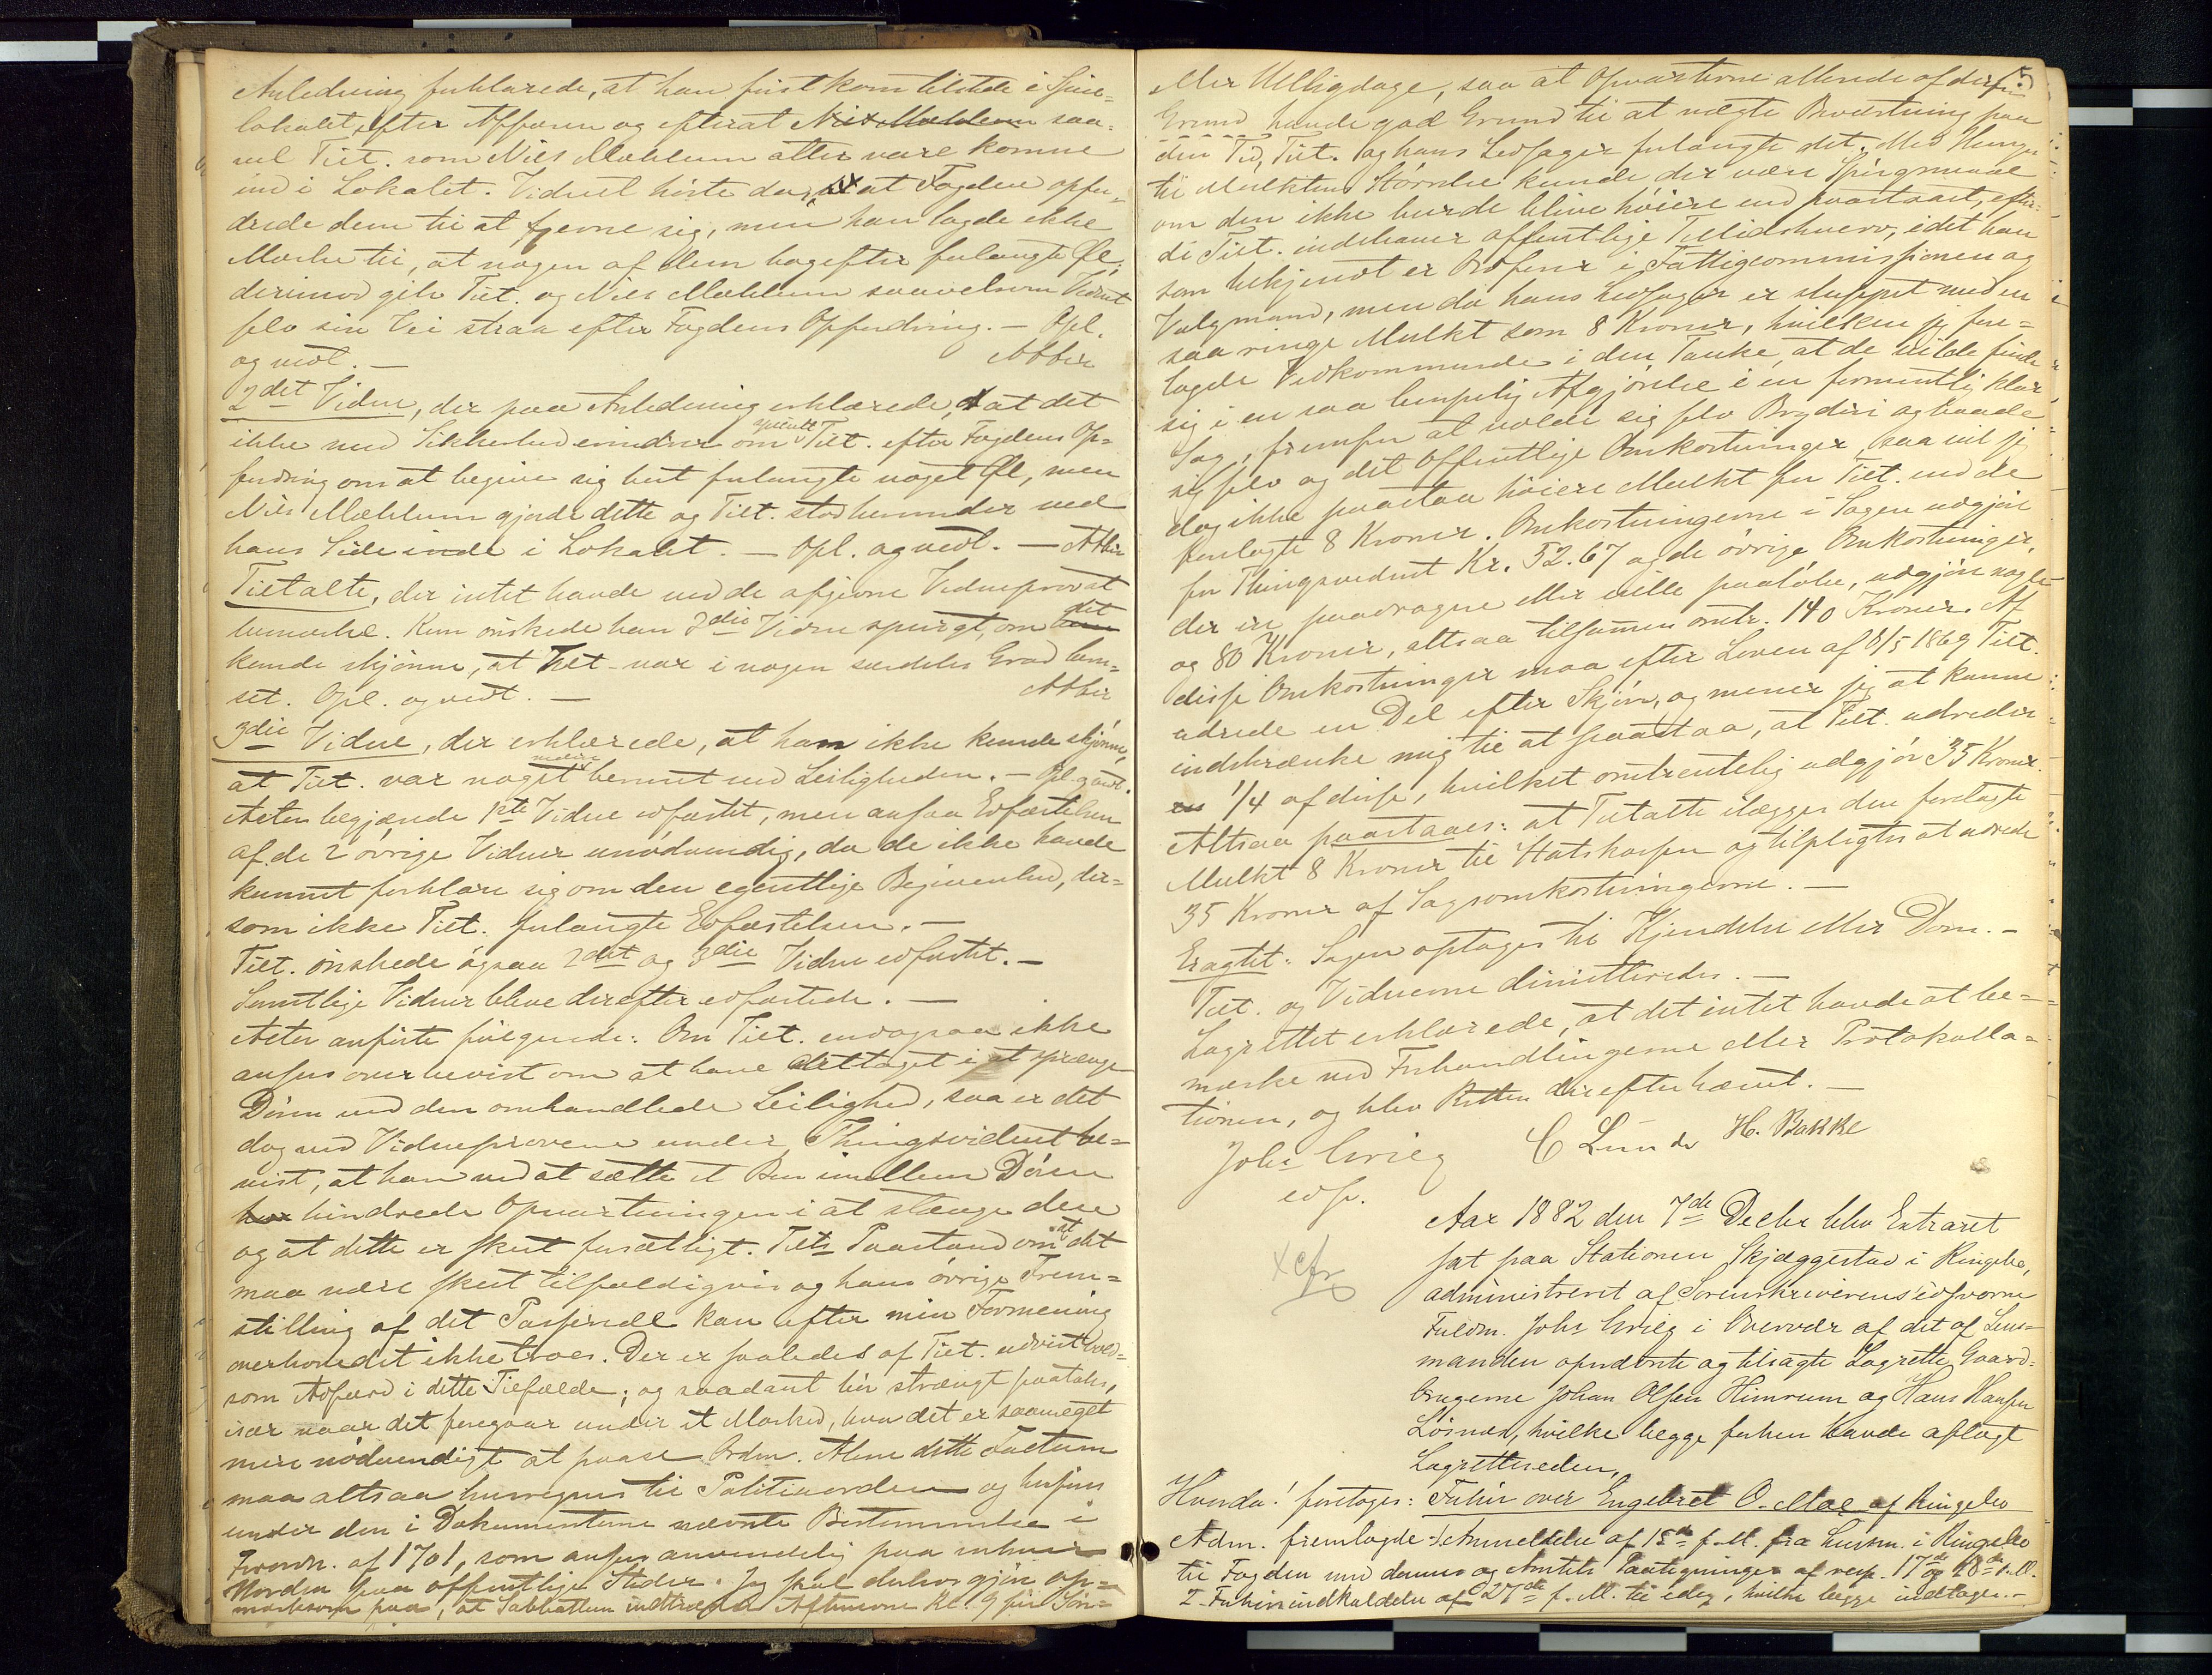 Anledning forklarede, at han først kom tilstede i Spise-
lokalet, efter Affæren og efterat Niels Mæhlum saa-
vel Tilt. som Niels Mæhlum atter vare komne
ind i Lokalet. Vidnet hørte da, at Fogden opfor-
drede dem til at fjerne sig, men han lagde ikke
Mærke til, at nogen af dem bagefter forlangte Øl;
derimod gik Tilt. og Niels Mæhlum saavelsom Vidnet
selv sin Vei strax efter Fogdens Opfordring. - Opl.
og vedt. - Atter
2det Vidne, der paa Anledning erklærede, at det
ikke med Sikkerhed erindrer om Tilt. efter Fogdens Op-
fordring om at begive sig bort forlangte noget Øl, men
Niels Mæhlum gjorde dette og Tilt. stod herunder ved
hans Side inde i Lokalet. - Opl. og vedt. - Atter
Tiltalte, der intet havde ved de afgivne Vidneprov at
bemærke. Kun ønskede han 3die Vidne spurgt, om det
kunde skjønne, at Tilt. var i nogen særdeles Grad beru-
set. Opl. og vedt. - Atter
3die Vidne, der erklærede, at han ikke kunde skjønne,
at Tilt. var noget videre beruset ved Leiligheden. - Opl. og vedt.
Actor begjærede 1ste Vidne edfæstet, men ansaa Edfæstelsen
af de 2 øvrige Vidner unødvendig, da de ikke havde
kunnet forklare sig om den egentlige Begivenhed, der-
som ikke Tilt. forlangte Edfæstelsen. -
Tilt. ønskede ogsaa 2det og 3die Vidne edfæstet. -
Samtlige Vidner bleve derefter edfæstede. -
Actor anførte følgende: Om Tilt. endogsaa ikke
ansees overbevist om at have deltaget i at sprænge
Døren ved den omhandlede Leilighed, saa er det
dog ved Vidneprovene under Thingsvidnet be-
vist, at han ved at sætte et Ben imellem Døren
har hindrede Opvartningen i at stænge dere
og at dette er skeet forsætligt. Tilts Paastand om at det
maa være skeet tilfældigvis og hans øvrige Frem-
stilling af det Passerede kan efter min Formening
overhovedet ikke troes. Der er saaledes af Tilt. udvist vold-
som Adfærd i dette Tilfælde; og saadant bør strængt paatales,
især naar det foregaar under et Marked, hvor det er saameget
mere nødvendigt at paase Orden. Alene dette Factum
maa altsaa henregnes til Politiuorden og henføres
under den i Dokumenterne nævnte Bestemmelse i
Frordn. af 1701, som ansees anvendelig paa enhver
Uorden paa offentlige Steder. Jeg skal derhos gjøre op-
mærksom paa, at Sabbathen indtræder Aftenerne Kl. 9 før Søn-
5.
eller Helligdage, saa at Opvarterne allerede af denne
Grund havde god Grund til at nægte Beværtning paa
den Tid, Tilt. og hans Ledsager forlangte det. Med Hensyn
til Mulktens Størrelse kunde der være Spørgsmaal
om den ikke burde blive høiere end paastaaet, efter-
di Tilt. indehaver offentlige Tillidshverv, idet han
som bekjendt er Ordfører i Fattigcommissionen og
Valgmand, men da hans Ledsager er sluppet med en
saa ringe Mulkt som 8 Kroner, hvilken jeg fore-
lagde Vedkommende i den Tanke, at de vilde finde
sig i en saa lempelig Afgjørelse i en formentlig klar
Sag, fremfor at volde sig selv Bryderi og baade
sig selv og det Offentlige Omkostninger, saa vil jeg
dog ikke paastaa høiere Mulkt for Tilt. end de
forelagte 8 Kroner. Omkostningerne i Sagen udgjør
for Thingsvidnet Kr. 52.67 og de øvrige Omkostninger,
der er paadragne eller ville paaløbe, udgjøre nogle
og 80 Kroner, altsaa tilsammen omtr. 140 Kroner. Af
disse Omkostninger maa efter Loven af 8/5 1869 Tilt.
udrede en Del efter Skjøn, og mener jeg at kunne
indskrænke mig til at paastaa, at Tilt. udreder
en 1/4 af disse, hvilket omtrentelig udgjør 35 Kroner.
Altsaa paastaaes: at Tiltalte ilægges den forelagte
Mulkt 8 Kroner til Statskassen og tilpligtes at udrede
35 Kroner af Sagsomkostningerne. -
Eragtet: Sagen optages til Kjendelse eller Dom. -
Tilt. og Vidnerne dimitteredes. -
Lagrettet erklærede, at det intet havde at be-
mærke ved Forhandlingerne eller Protokolla-
tionen, og blev Retten derefter hævet. -
Johs Grieg C Lunde H. Bakke
edsv.
Aar 1882 den 7de Decbr blev Extraret
sat paa Stationen Skjæggestad i Ringebo,
administreret af Sorenskriverens edsvorne
Fuldm. Johs Grieg i Overvær af det af Lens-
manden opnævnte og tilsagte Lagrette Gaard-
brugerne Johan Olsen Himrum og Hans Hansen
Løsnæs, hvilke begge forhen havde aflagt
Lagretteseden,
x cfr
Hvorda! foretoges: Forhør over Engebret O. Moe af Ringebo
Adm. fremlagde: 1 Anmeldelse af 15de f. M. fra Lensm. i Ringebo
til Fogden med dennes og Amtets Paategninger af resp. 17de og 20de s. M.
2. Forhørsindkaldelse af 27de f. M. til idag, hvilke begge indtages. -